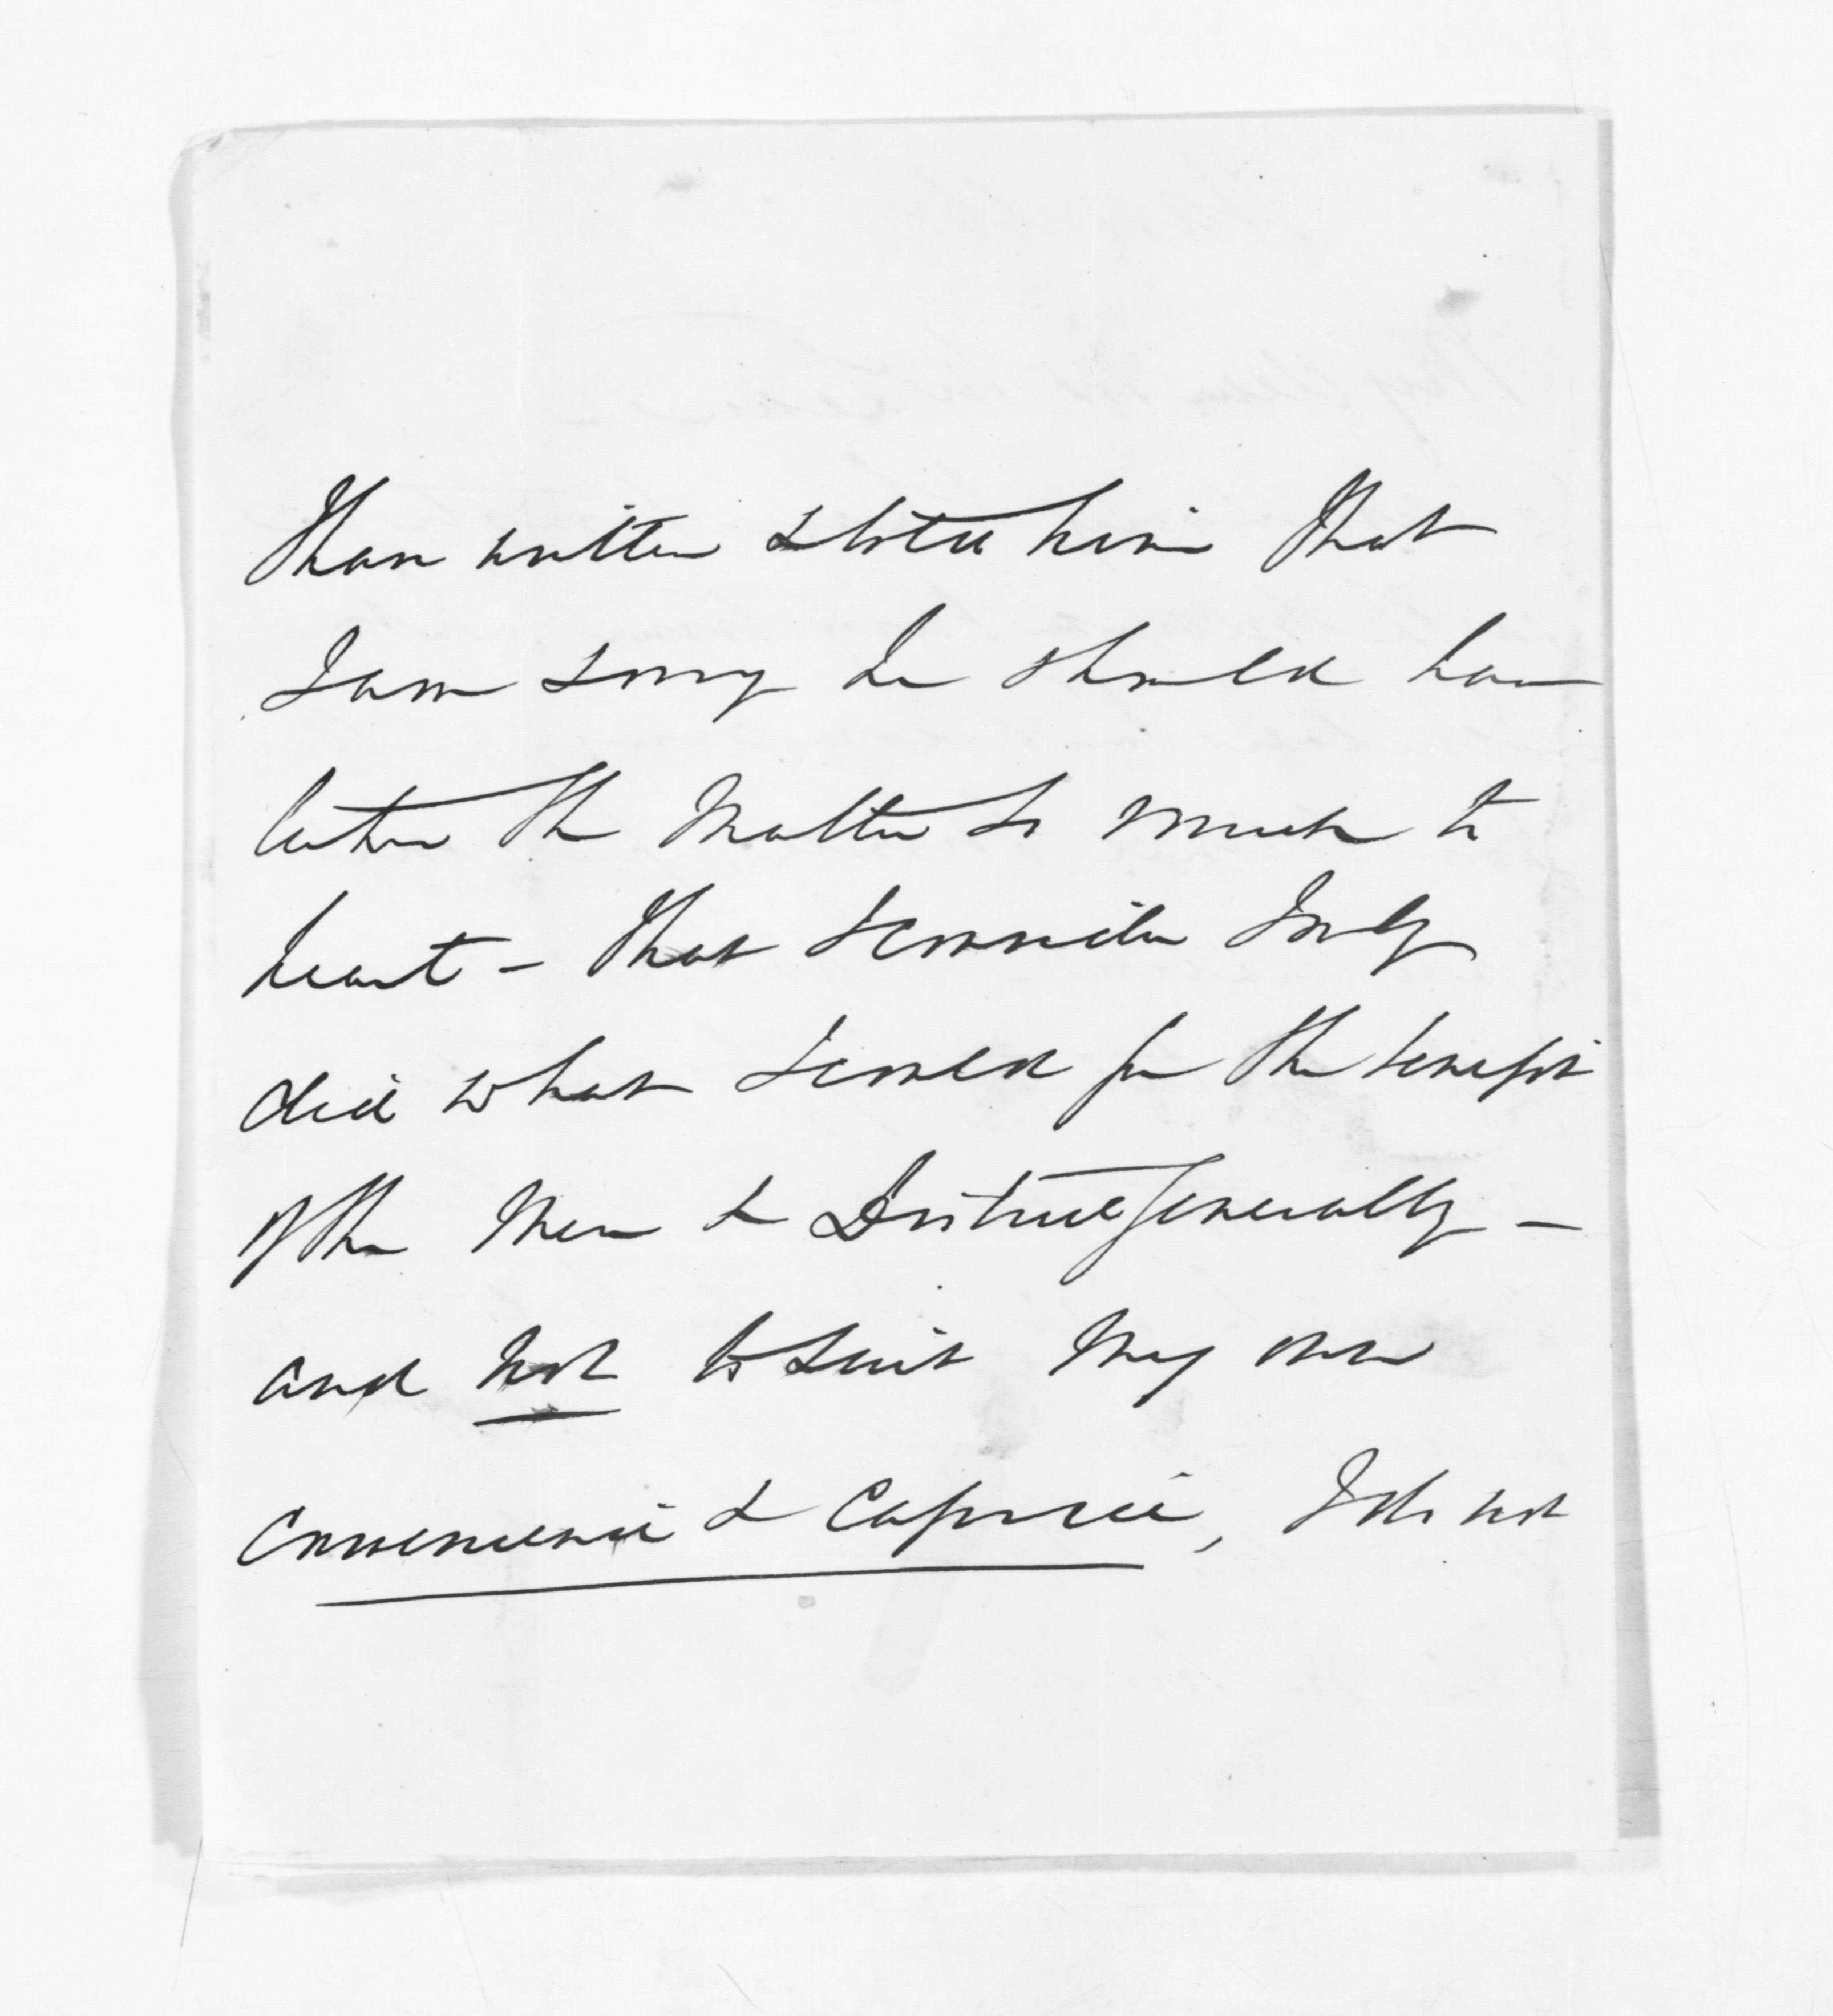 I have written & told him that
I am sorry he should have
taken the matter so much to
heart - that I consider I only
did what I could for the benefit
of the men & District generally -
and not to suit my own
convenience & caprice, I do not